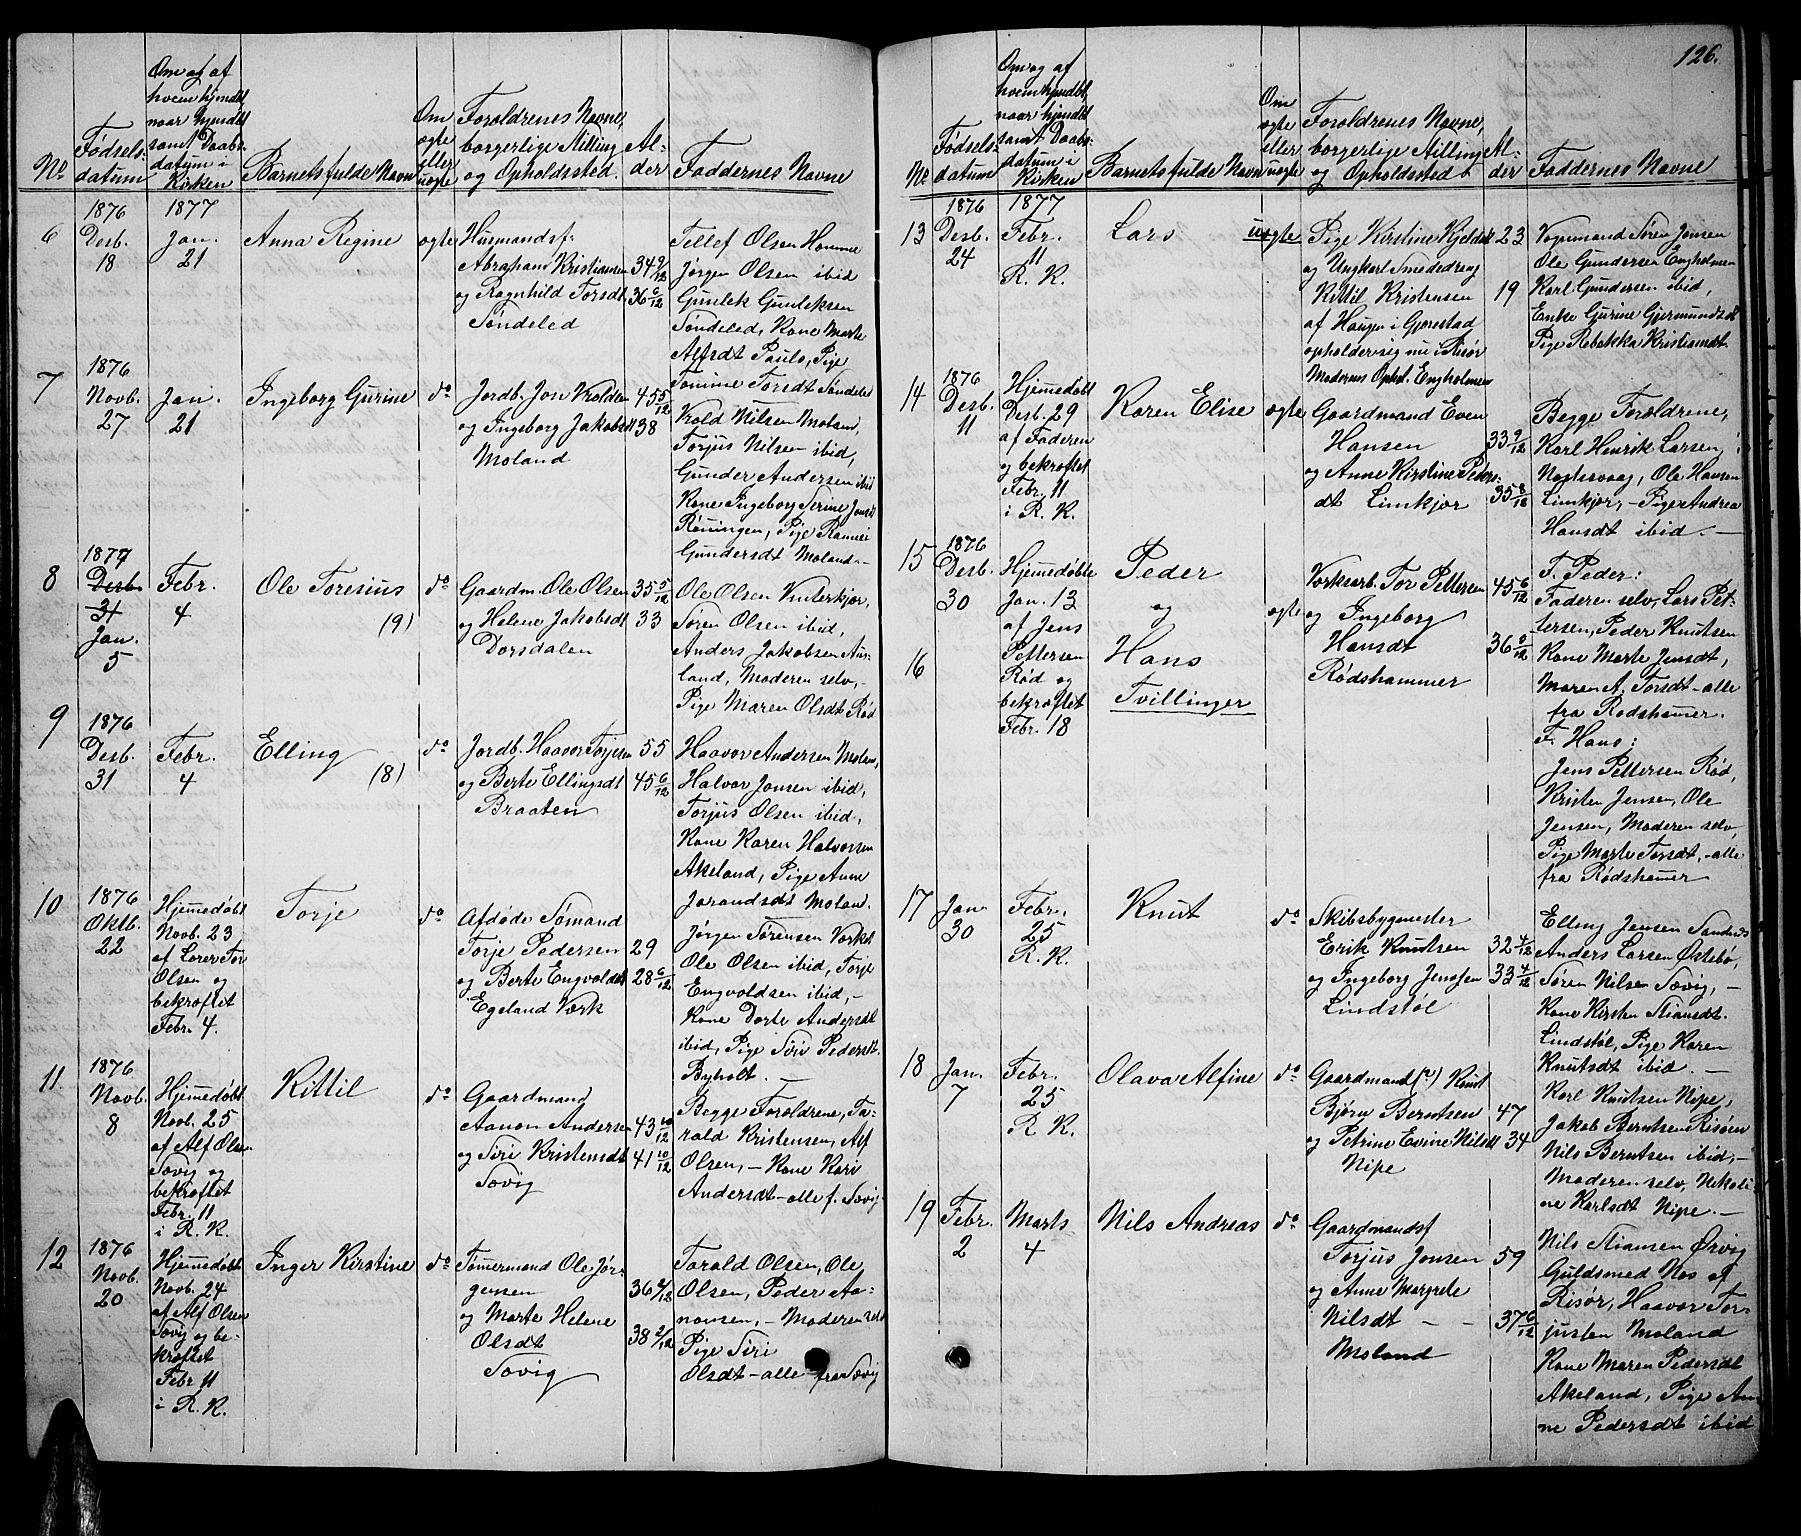 126.
No.
Fødsels-
datum
Om og af
hvem hjemdbt,
naar hjemdbt
samt Daabs-
datum i
Kirken
Barnets fulde Navn
Om
ægte
eller
uægte
Forældrenes Navne,
borgerlige Stilling
og Opholdssted.
Al-
der
Faddernes Navne
6
1876
Desb.
18
1877
Jan.
21
Anna Regine
ægte
Husmandsf.
Abraham Kristiansen
og Ragnhild Torsdt
Søndeled
34 9/12
36 6/12
Tellef Olsen Homme
Jørgen Olsen ibid
Gunlek Gunleksen
Søndeled, Kone Marte
Alfsdt Paulo, Pige
Tomine Torsdt Søndele
7
1876
Novb.
27
Jan.
21
Ingeborg Gurine
do
Jordb. Jon Vrolden
og Ingeborg Jakobsdt
Moland
45 5/12
38
Vrold Nilsen Molan,
Torjus Nilsen ibid,
Gunder Andersen ibid
Kone Ingeborg Serine Jonsdt
Røningen, Pige
Gundersdt Moland.-
8
1877
Desb.
31
Jan.
5
Febr.
4
Ole Toresius
(9)
do
Gaardm. Ole Olsen
og Helene Jakobsdt
Dorsdalen
35 5/12
33
Ole Olsen Vinterkjær,
Søren Olsen ibid,
Anders Jakobsen Aus-
land, Moderen selv,-
Pige Maren Olsdt Rød
9
1876
Desb.
31
Febr.
4
Elling
(8)
do
Jordb. Haavor Torjesen
og Berte Ellingsdt
Braaten
55
45 6/12
Haavor Andersen Molan,
Halvor Jonsen ibid,
Torjus Olsen ibid,
Kone Karen Halvorsen
Akeland, Pige Anne
Jorandsdt Molan.
10
1876
Oktb.
22
Hjemmedøbt
Novb. 23
af Lærer Tor
Olsen og
bekræftet
Febr. 4.
Torje
do
Afdøde Sømand
Torje Pedersen
og Berte Engvoldsdt
Egeland Værk
29
28 6/12
Jørgen Sørensen Værket
Ole Olsen ibid, Torje
Engvoldsen ibid,-
Kone Dorte Andersdt
ibid, Pige Siri Pedersdt
Byholt.-
11.
1876
Novb.
8
Hjemmedøbt
Novb. 25
af Alf Olsen
Søvig og
bekræftet
Febr. 11
i R. K.
Kittil
do
Gaardmand
Aanon Andersen
og Siri Kristensdt
Søvig
43 10/12
41 10/12
Begge Forældrene, Ta-
rald Kristensen, Alf
Olsen,- Kone Kari
Andersdt - alle f. Søvig
12
1876
Novb.
20
Hjemmedøbt
Novb. 24
af Alf Olsen
Søvig og be-
kræftet
Febr. 11
i R. K.
Inger Kirstine
do
Tømmermand Ole Jør-
gensen
og Marte Helene
Olsdt
Søvig
36 2/12
38 2/12
Torald Olsen, Ole
Olsen, Peder Aa-
nonsen,- Moderen selv
Pige Siri
Olsdt - alle fra Søvig
No.
Fødsels-
datum
Om og af
hvem hjemdbt,
naar hjemdbt
samt Daabs-
datum i
Kirken
Barnets fulde Navn
Om
ægte
eller
uægte
Forældrenes Navne,
borgerlige Stilling
og Opholdssted
Al-
der
Faddernes Navne
13
1876
Desb.
24
1877
Febr.
11
R. K.
Lars
uægte
Pige Kirstine Kjeldsdt
og Ungkarl Smededreng
Kittil Kristensen
af Haugen i Gjerestad
opholder sig nu i Risør
Moderens Ophd. Engholmen
23
19
Vognmand Søren Jonsen
Ole Gundersen Engholmen
Karl Gundersen ibid,
Enke Gurine Gjermundsdt
Pige Rebekka Kristiansdt.
14
1876
Desb.
11
Hjemmedøbt
Desb. 29
af Faderen
og bekræftet
Febr. 11
i R. K.
Karen Elise
ægte
Gaardmand Even
Hansen
og Anne Kirstine Peders-
dt Limkjær
33 9/12
35 8/12
Begge Forældrene,
Karl Henrik Larsen,
Ole Hansen
Limkjær,- Pige Andrea
Hansdt ibid.-
15
1876
Desb.
30
Hjemmedøbte
Jan. 13
af Jens
Pettersen
Rød og
bekræftet
Febr. 18
Peder
og
16
Hans
Tvillinger
ægte
Værksarb. Tor Pettersen
og Ingeborg
Hansdt
Rødshammer
45 6/12
36 5/12
F. Peder:
Faderen selv, Lars Pet-
tersen, Peder Knutsen
Kone Marte Jensdt,
Maren A. Torsdt - alle
fra Rødshamer.
F. Hans:
Jens Pettersen Rød,
Kristen Jensen, Ole
Jensen, Moderen selv,
Pige Marte Torsdt,-alle
fra Rødshamer
17
Jan.
30
Febr.
25
R. K.
Knut
do
Skibsbygmester
Erik Knutsen
og Ingeborg Jensen
Lindstøl
32 4/12
33 4/12
Elling Jensen Sandnes
Anders Larsen Østebø,
Søren Nilsen Søvig,-
Kone Kirsten Stiansdt.
Lindstøl, Pige Karen
Knutsdt ibid.-
18
Jan.
7
Febr.
25
R. K.
Olava Alfine
do
Gaardmand (?) Knut
Bjørn Berntsen
og Petrine Evine Nilsdt
Nipe
47
34
Karl Knutsen Nipe,
Jakob Berntsen Risøen
Nils Berntsen ibid,-
Moderen selv, Nikoli-
ne Karlsdt Nipe.-
19
Febr.
2
Marts
4
Nils Andreas
do
Gaardmandsf
Torjus Jonsen
og Anne Margrete
Nilsdt - -
Moland
59
37 6/12
Nils Stiansen Ørvig
Guldsmed Næs af
Risør, Haavor Tor-
jusen Moland
Kone Maren Pedersdt
Akeland, Pige An-
ne Pedersdt ibid